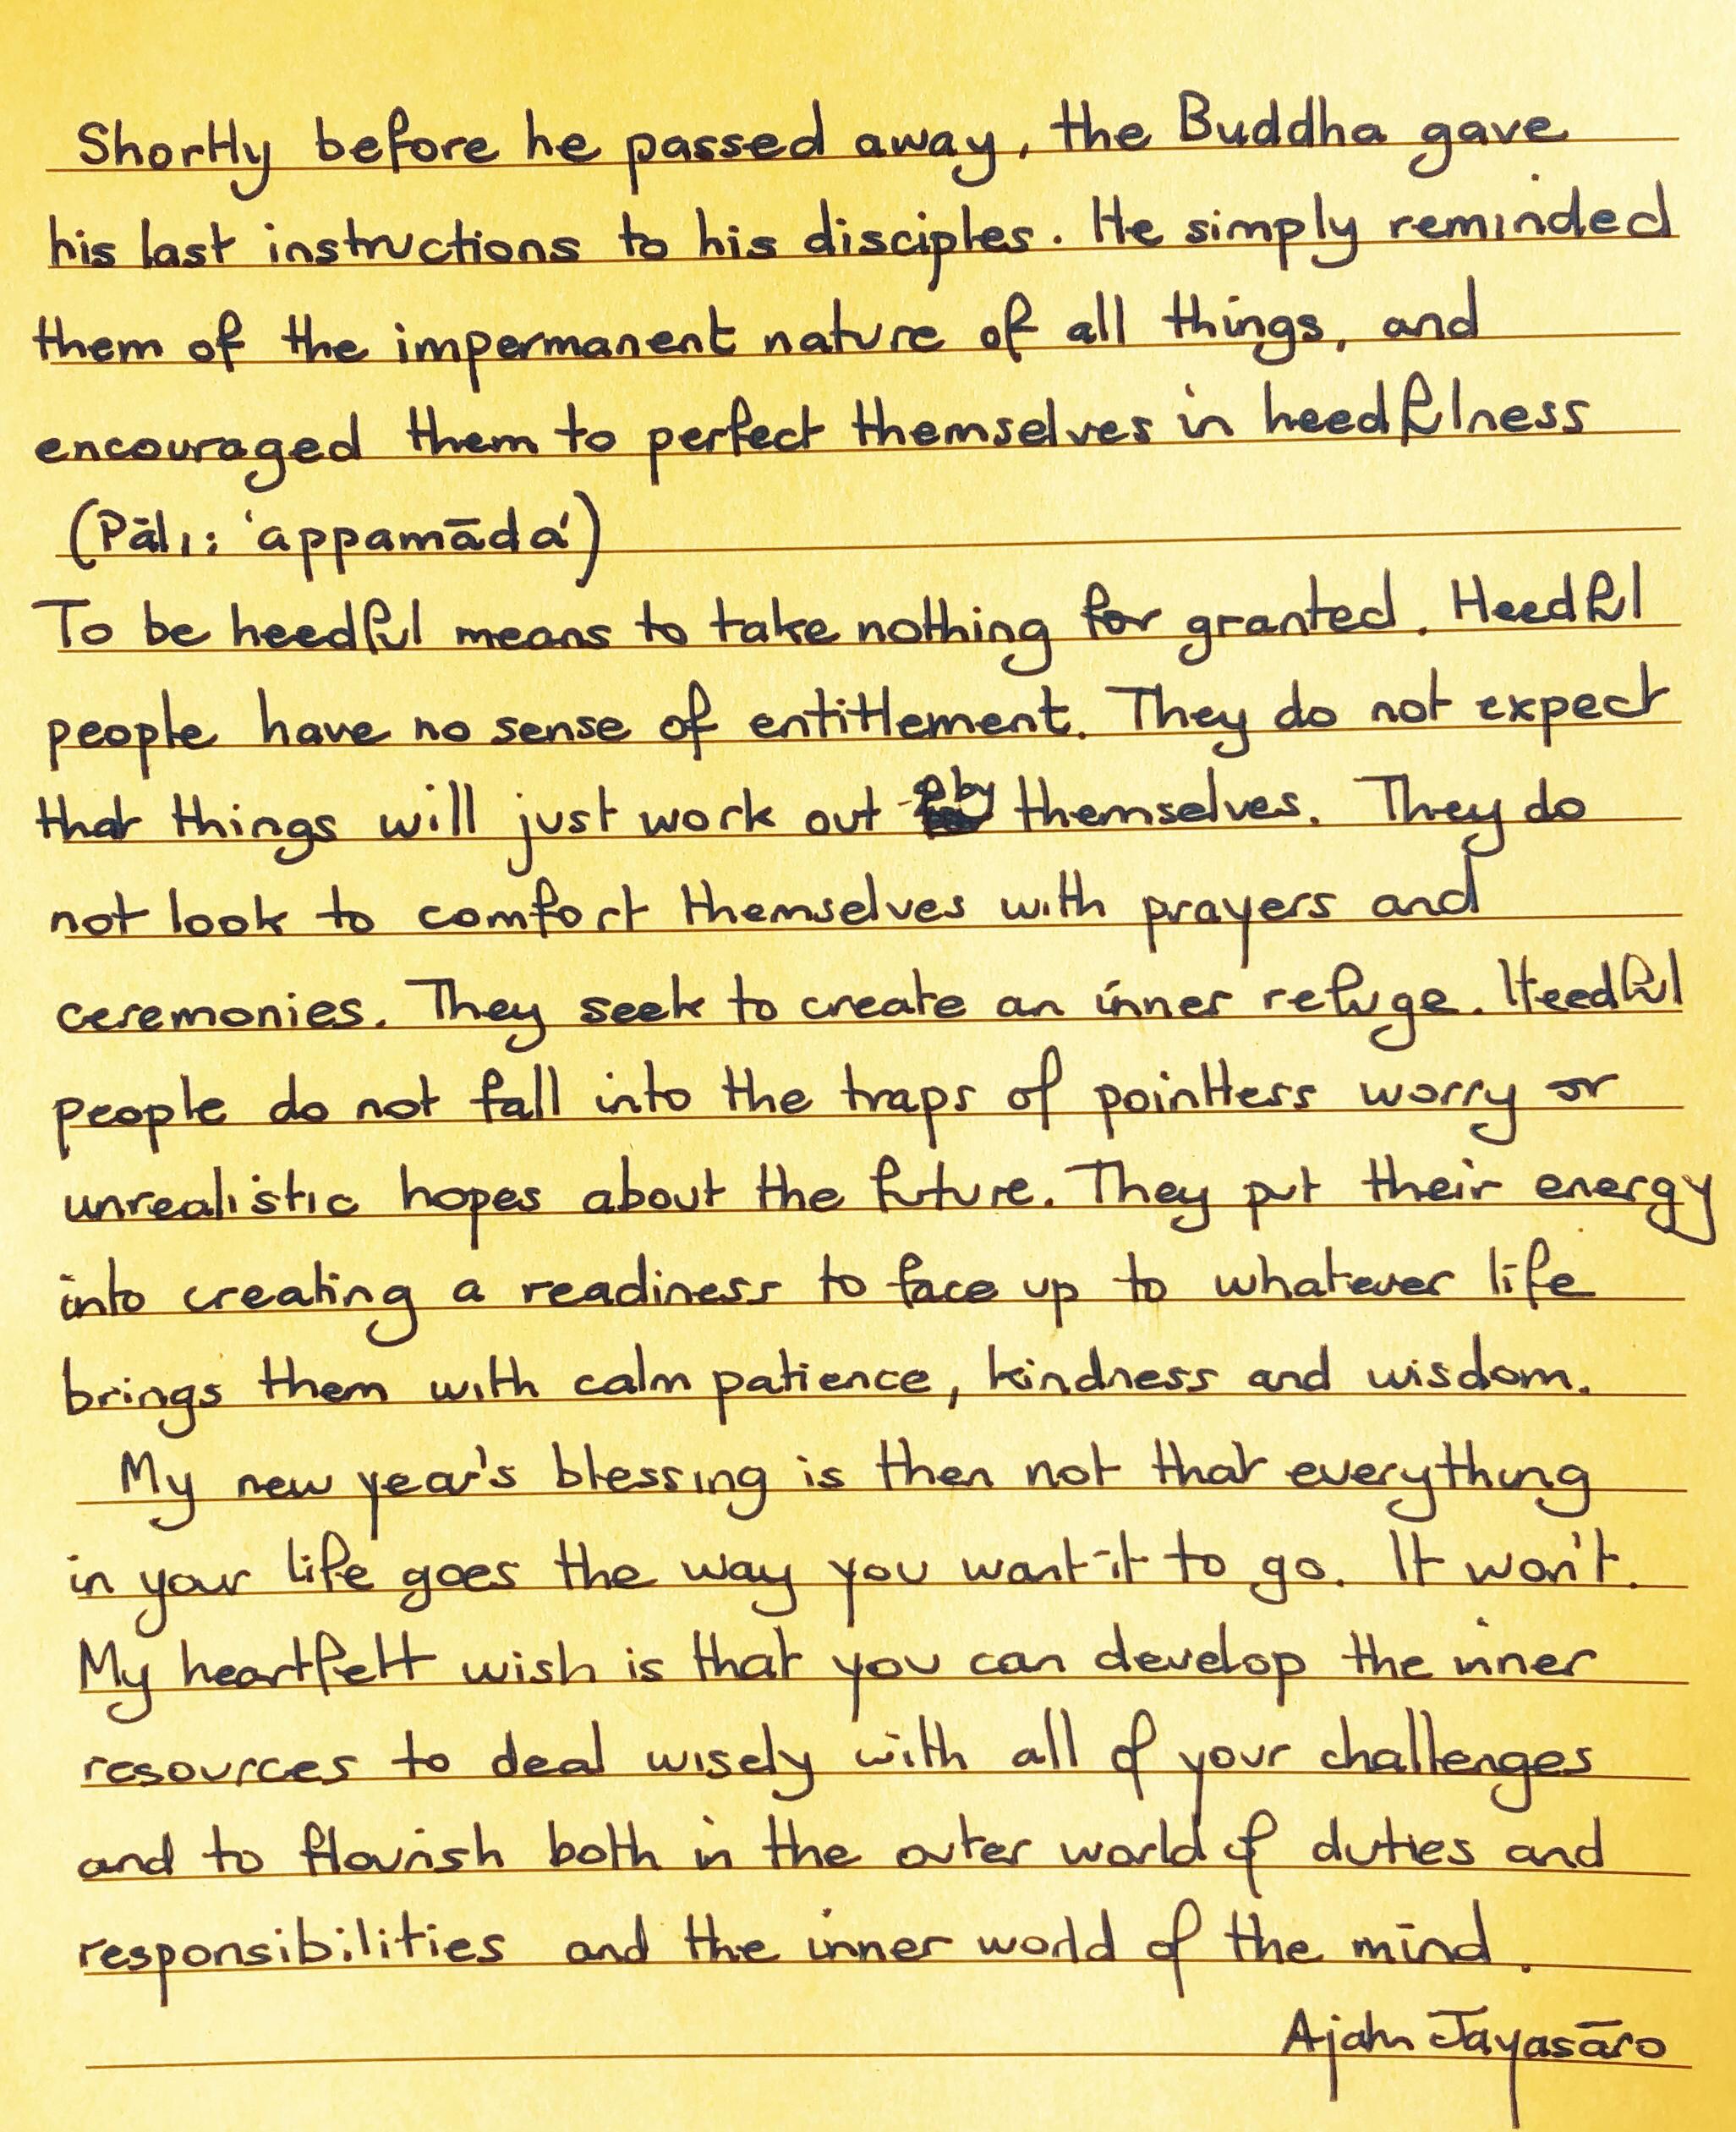 Shortly before he passed away, the Buddha gave
his last instructions to his disciples. He simply reminded
them of the impermanent nature of all things, and
encouraged them to perfect themselves in heedfulness
(Pāli: 'appamāda')
To be heedful means to take nothing for granted. Heedful
people have no sense of entitlement. They do not expect
that things will just work out by themselves. They do
not look to comfort themselves with prayers and
ceremonies. They seek to create an inner refuge. Heedful
people do not fall into the traps of pointless worry or
unrealistic hopes about the future. They put their energy
into creating a readiness to face up to whatever life
brings them with calm patience, kindness and wisdom.
My new year's blessing is then not that everything
in your life goes the way you want it to go. It won't.
My heartfelt wish is that you can develop the inner
resources to deal wisely with all of your challenges
and to flourish both in the outer world of duties and
responsibilities and the inner world of the mind.
Ajahn Jayasāro